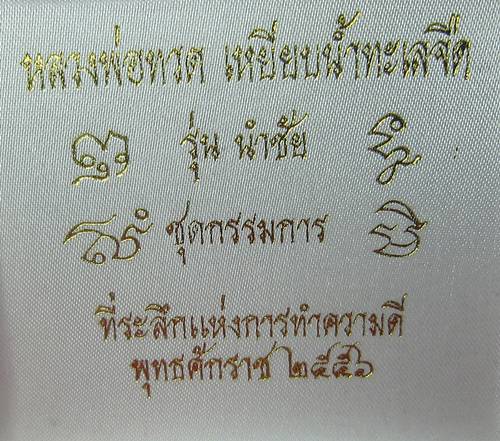 หลวงพ่อทวด เหยียบน้ำทะเลจืด
รุ่น นำชัย
ชุดกรรมการ
ที่ระลึกแห่งการทำความดี
พุทธศักราช ๒๕๕๖